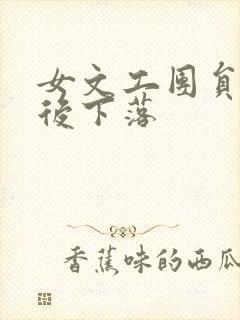 女文工團
後下落
香蕉味的西瓜